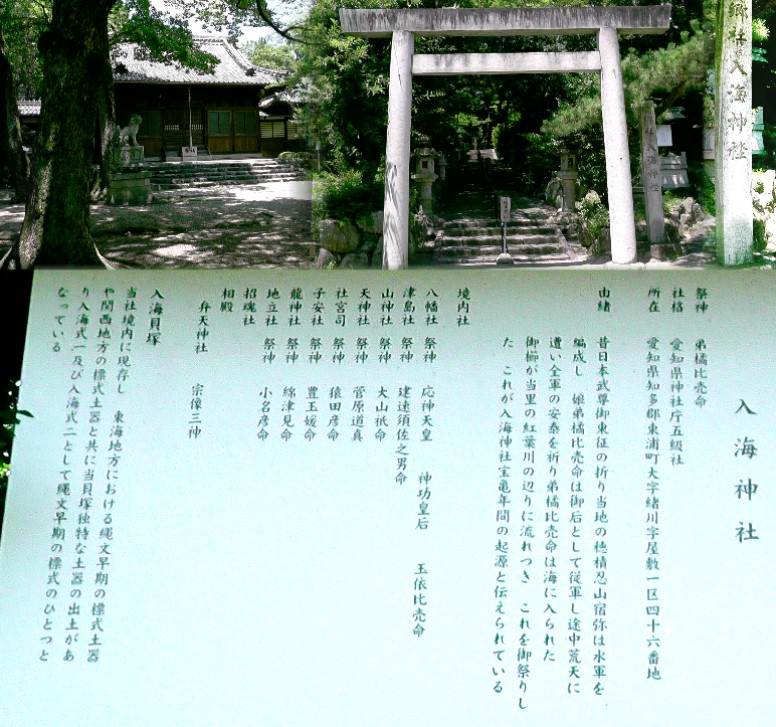 郷社入海神社
入海神社
入海神社
祭神 弟橘比売命
社格 愛知県神社庁五級社
所在 愛知県知多郡東浦町大字緒川字屋敷一区四十六番地
由緒 昔日本武尊御東征の折り当地の穂積忍山宿弥は水軍を
編成し 娘弟橘比売命は御后として従軍し途中荒天に
遭い全軍の安泰を祈り弟橘比売命は海に入られた
御櫛が当里の紅葉川の辺りに流れつき これを御祭りし
た これが入海神社宝亀年間の起源と伝えられている
境内社
八幡社 祭神 応神天皇 神功皇后 玉依比売命
津島社 祭神 建速須佐之男命
山神社 祭神 大山祇命
天神社 祭神 菅原道真
社宮司 祭神 猿田彦命
子安社 祭神 豊玉媛命
龍神社 祭神 綿津見命
地立社 祭神 小名彦命
招魂社
相殿
弁天神社 宗像三神
入海貝塚
当社境内に現存し 東海地方における縄文早期の標式土器
や関西地方の標式土器と共に当貝塚独特な土器の出土があ
り入海式一及び入海式二として縄文早期の標式のひとつと
なっている